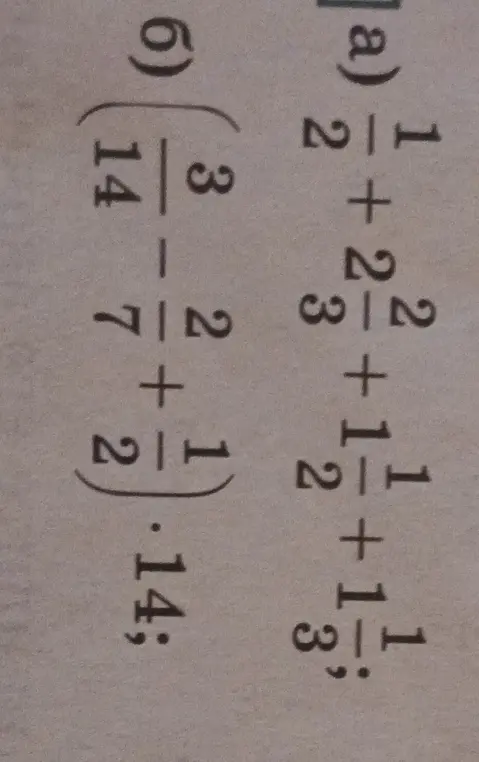 а) 1/2 + 2 2/3 + 1 1/2 + 1 1/3;
б) (3/14 − 2/7 + 1/2) · 14;